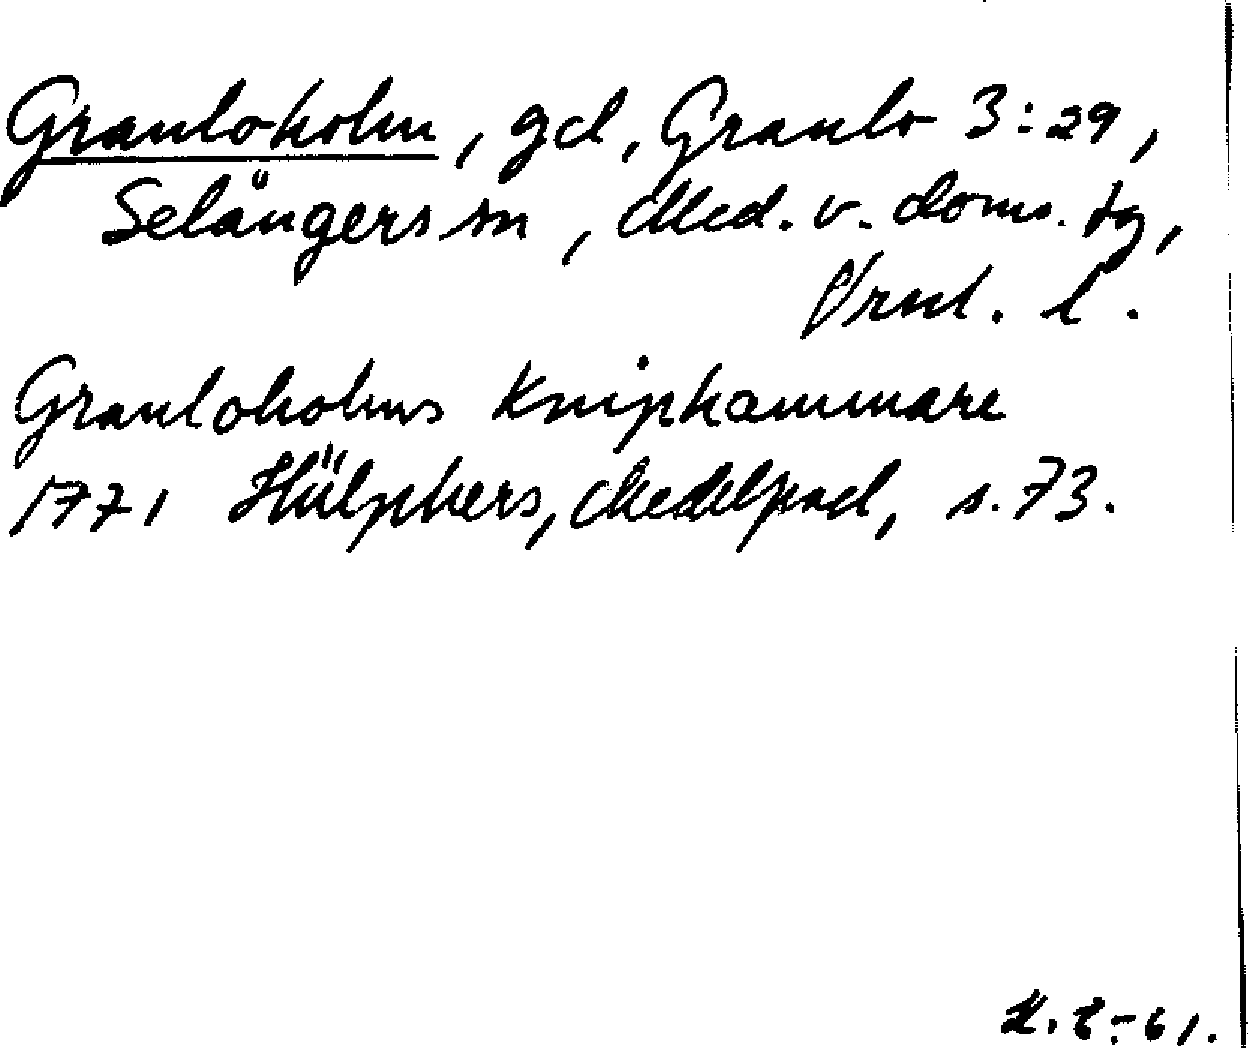 Granloholm, gd, Granlo 3:29,
Selångers sn, Med. v. doms. tg,
Vrnl. l.
Granloholms Kniphammare
1771 Hülphers, Medelpad, s. 73.